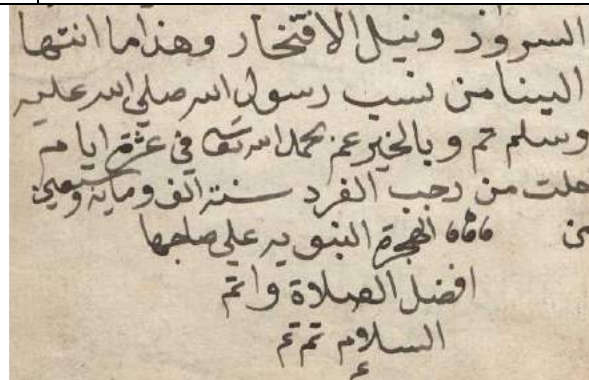 السرور ونيل الافتخار وهذا ما انتها
الينا من نسب رسول الله صلي الله عليه
وسلم تم وبالخير عم بحمد الله تعا في عشرة ايام
خلت من رجب الفرد سنة الف وماية وسبعين
من الهجرة النبويه علي صاحبها
افضل الصلاة واتم
السلام تم تم